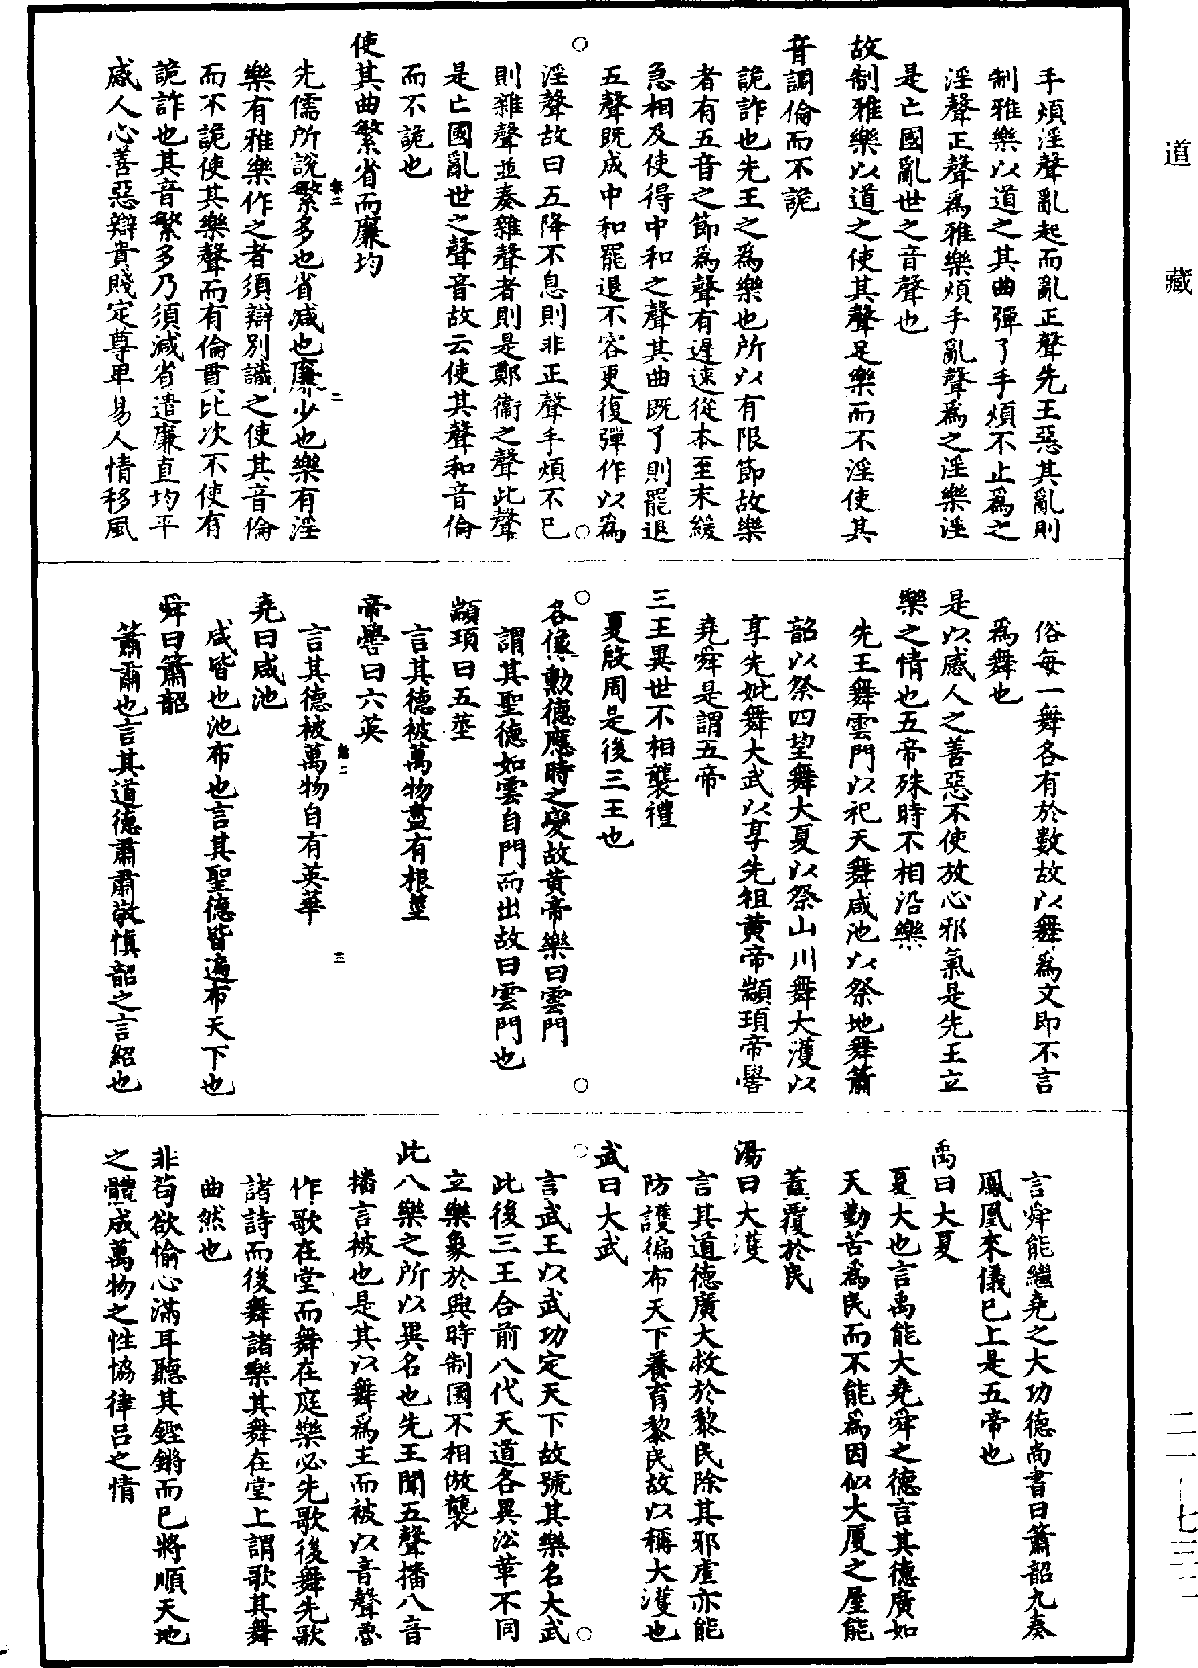 道藏
手煩淫聲亂起而亂正聲先王惡其亂則
制雅樂以道之其曲彈了手煩不止為之
淫聲正聲為雅樂煩手亂聲為之淫樂淫
是亡國亂世之音聲也
故制雅樂以道之使其聲足樂而不淫使其
音調倫而不詭
詭詐也先王之為樂也所以有限節故樂
者有五音之節為聲有遲速從本至末緩
急相及使得中和之聲其曲既了則罷退
五聲既成中和罷退不容更復彈作以為
淫聲故曰五降不息則非正聲手煩不已
則雜聲並奏雜聲者則是鄭衛之聲此聲
是亡國亂世之聲音故云使其聲和音倫
而不詭也
使其曲繁省而廉均
先儒所說繁多也省減也廉少也樂有淫
樂有雅樂作之者須辯別識之使其音倫
而不詭使其樂聲而有倫貫比次不使有
詭詐也其音繁多乃須減省遣廉直均平
感人心善惡辯貴賤定尊卑易人情移風
俗每一舞各有於數故以舞為文即不言
為舞也
是以感人之善惡不使放心邪氣是先王立
樂之情也五帝殊時不相沿樂
先王舞雲門以祀天舞咸池以祭地舞簫
韶以祭四望舞大夏以祭山川舞大濩以
享先妣舞大武以享先祖黃帝顓頊帝嚳
堯舜是謂五帝
三王異世不相襲禮
夏殷周是後三王也
各像勲德應時之變故黃帝樂曰雲門
謂其聖德如雲自門而出故曰雲門也
顓頊曰五莖
言其德被萬物盡有根莖
帝嚳曰六英
言其德被萬物自有英華
堯曰咸池
咸皆也池布也言其聖德皆遍布天下也
舜曰簫韶
簫肅也言其道德肅肅敬慎韶之言紹也
言舜能繼堯之大功德尚書曰簫韶九奏
鳳凰來儀已上是五帝也
禹曰大夏
夏大也言禹能大堯舜之德言其德廣如
天勤苦為民而不能為因似大厦之屋能
蓋覆於民
湯曰大濩
言其道德廣大救於黎民除其邪虐亦能
防護徧布天下養育黎民故以稱大濩也
武曰大武
言武王以武功定天下故號其樂名大武
此後三王合前八代天道各異㳂革不同
立樂象於與時制國不相倣襲
此八樂之所以異名也先王聞五聲播八音
播言被也是其以舞為主而被以音聲魯
作歌在堂而舞在庭樂必先歌後舞先歌
諸詩而後舞諸樂其舞在堂上謂歌其舞
曲然也
非苟欲愉心滿耳聽其鏗鏘而已將順天地
之體成萬物之性協律呂之情